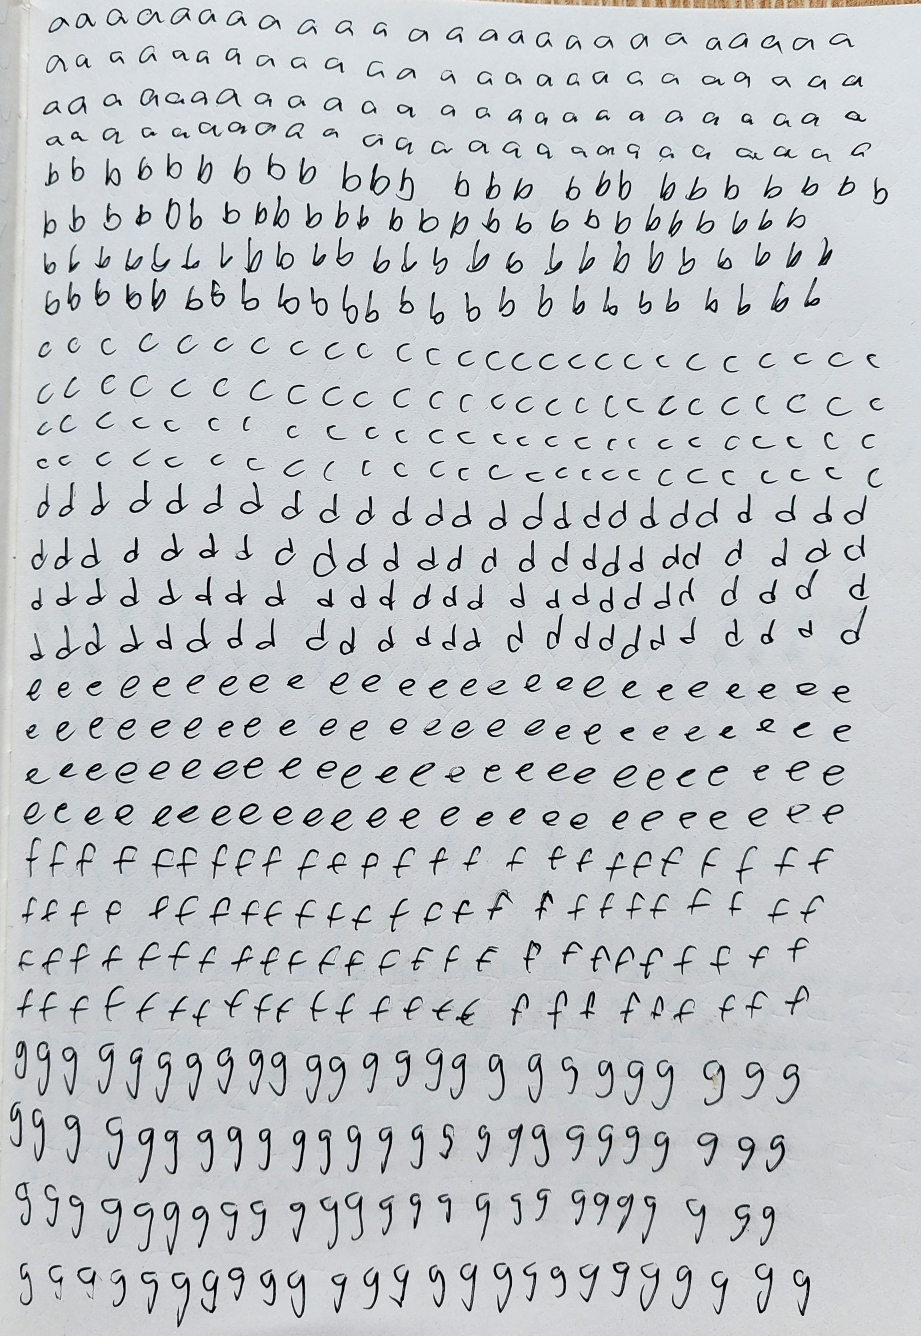 a a a a a a a a a a a a a a a a a a a a a a a a a
a a a a a a a a a a a a a a a a a a a a a a a a
a a a a a a a a a a a a a a a a a a a a a a a a a
a a a a a a a a a a a a a a a a a a a a a a a a a
b b b b b b b b b b b b b b b b b b b b b b b b b
b b b b b b b b b b b b b b b b b b b b b b b b b
b b b b b b b b b b b b b b b b b b b b b b b b b
b b b b b b b b b b b b b b b b b b b b b b b b b
c c c c c c c c c c c c c c c c c c c c c c c c c
c c c c c c c c c c c c c c c c c c c c c c c c c
c c c c c c c c c c c c c c c c c c c c c c c c c
c c c c c c c c c c c c c c c c c c c c c c c c c
d d d d d d d d d d d d d d d d d d d d d d d d d
d d d d d d d d d d d d d d d d d d d d d d d d d
d d d d d d d d d d d d d d d d d d d d d d d d d
d d d d d d d d d d d d d d d d d d d d d d d d d
e e e e e e e e e e e e e e e e e e e e e e e e e
e e e e e e e e e e e e e e e e e e e e e e e e e
e e e e e e e e e e e e e e e e e e e e e e e e e
e e e e e e e e e e e e e e e e e e e e e e e e e
f f f f f f f f f f f f f f f f f f f f f f f f f
f f f f f f f f f f f f f f f f f f f f f f f f f
f f f f f f f f f f f f f f f f f f f f f f f f f
f f f f f f f f f f f f f f f f f f f f f f f f f
g g g g g g g g g g g g g g g g g g g g g g g g g
g g g g g g g g g g g g g g g g g g g g g g g g g
g g g g g g g g g g g g g g g g g g g g g g g g g
g g g g g g g g g g g g g g g g g g g g g g g g g